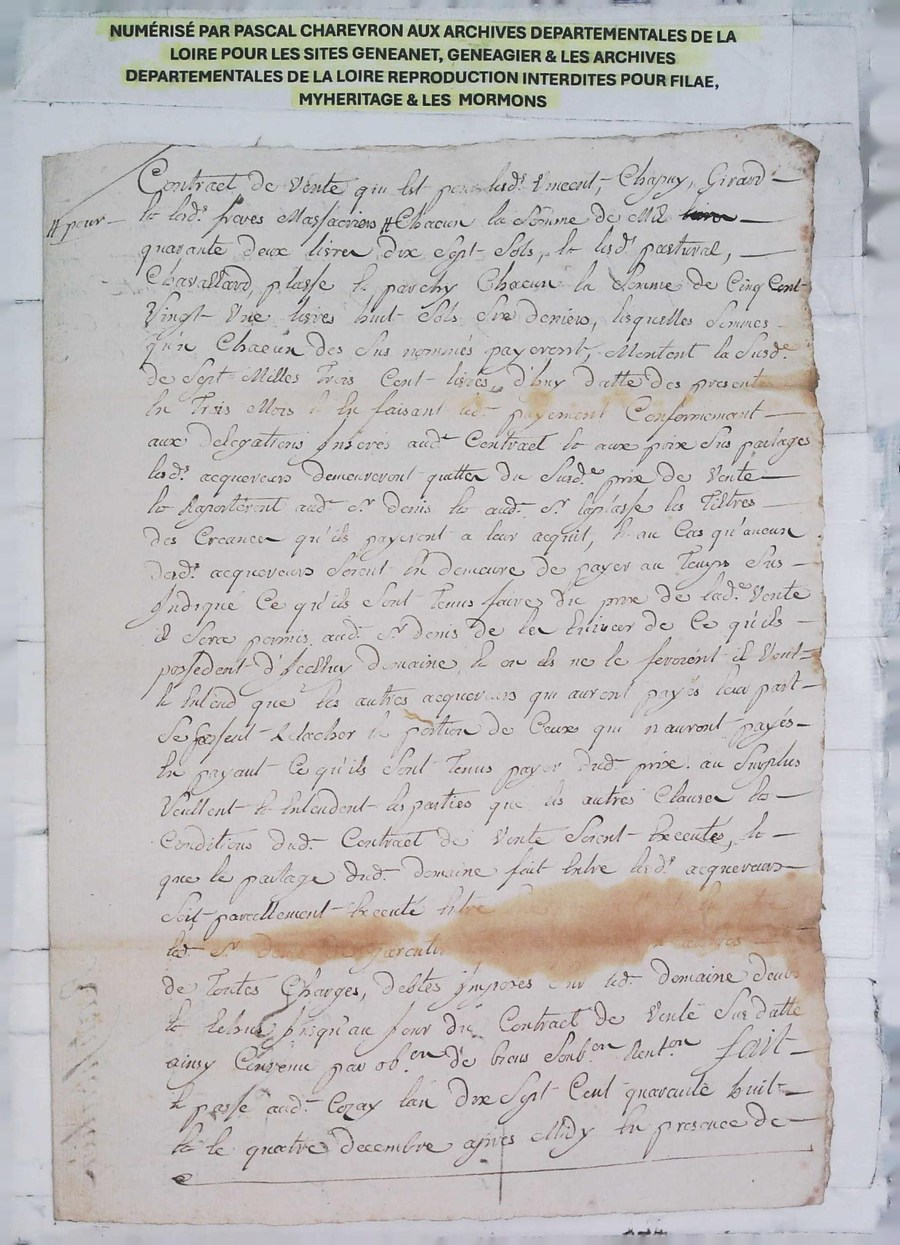 NUMÉRISÉ PAR PASCAL CHAREYRON AUX ARCHIVES DEPARTEMENTALES DE LA
LOIRE POUR LES SITES GENEANET, GENEAGIER & LES ARCHIVES
DEPARTEMENTALES DE LA LOIRE REPRODUCTION INTERDITES POUR FILAE,
MYHERITAGE & LES MORMONS
Contract de Vente qui est pour lesd.s Vincent, Chapuy, Girard
# pour
et lesd.s freres Massacriers # Chacun la Somme de Mil
quarante deux livres dix Sept Sols, et lesd.s pastural,
Chavallard, plasse et parchy Chacun la Somme de Cinq Cent
Vingt Une livres huit Sols Six deniers, lesquelles Sommes
qu'n Chacun des Sus nommés payeront, Montent la Susd.e
de Sept Milles Trois Cent livres, d'huy datte des presentes
En Trois Mois et En faisant led.t payement Conformemant
aux delegations Inserés aud.t Contract et aux prix Sus partages
lesd.s acquereurs demeureront quittes du Susd.e prix de Vente
et Raporteront aud.t S.r denis et aud.t S.r laplasse les Tiltres
des Creances qu'ils payeront a leur acquit, et au Cas qu'aucun
desd.s acquereurs Seront En demeure de payer au Temps Sus
Indiqué Ce qu'ils Sont Tenus faire du prix de lad.e Vente
il Sera permis aud.t S.r denis de les Evincer de Ce qu'ils
possedent d'Icelluy domaine, et ou ils ne le feroient il Veut
et Entend que les autres acquereurs qui auront payés leur part
Se fassent Relacher la portion de Ceux qui n'auront payés
En payant Ce qu'ils Sont Tenus payer dud.t prix. au Surplus
Veullent et Entendent les parties que les autres Clauses et
Conditions dud.t Contract de Vente Soient Executés, et
que le partage dud.t domaine fait Entre lesd.s acquereurs
Soit pareillement Executé Entre
led.t S.r
de Toutes Charges, debtes Imposes Sur led.t domaine deubs
et Echus Jusqu'au Jour du Contract de Vente Sus datté
ainsy Convenu par ob.on de biens Soub.on Rent.on fait
et passé aud.t Cezay l'an dix Sept Cent quarante huit
et le quatre decembre apres Midy En presence de